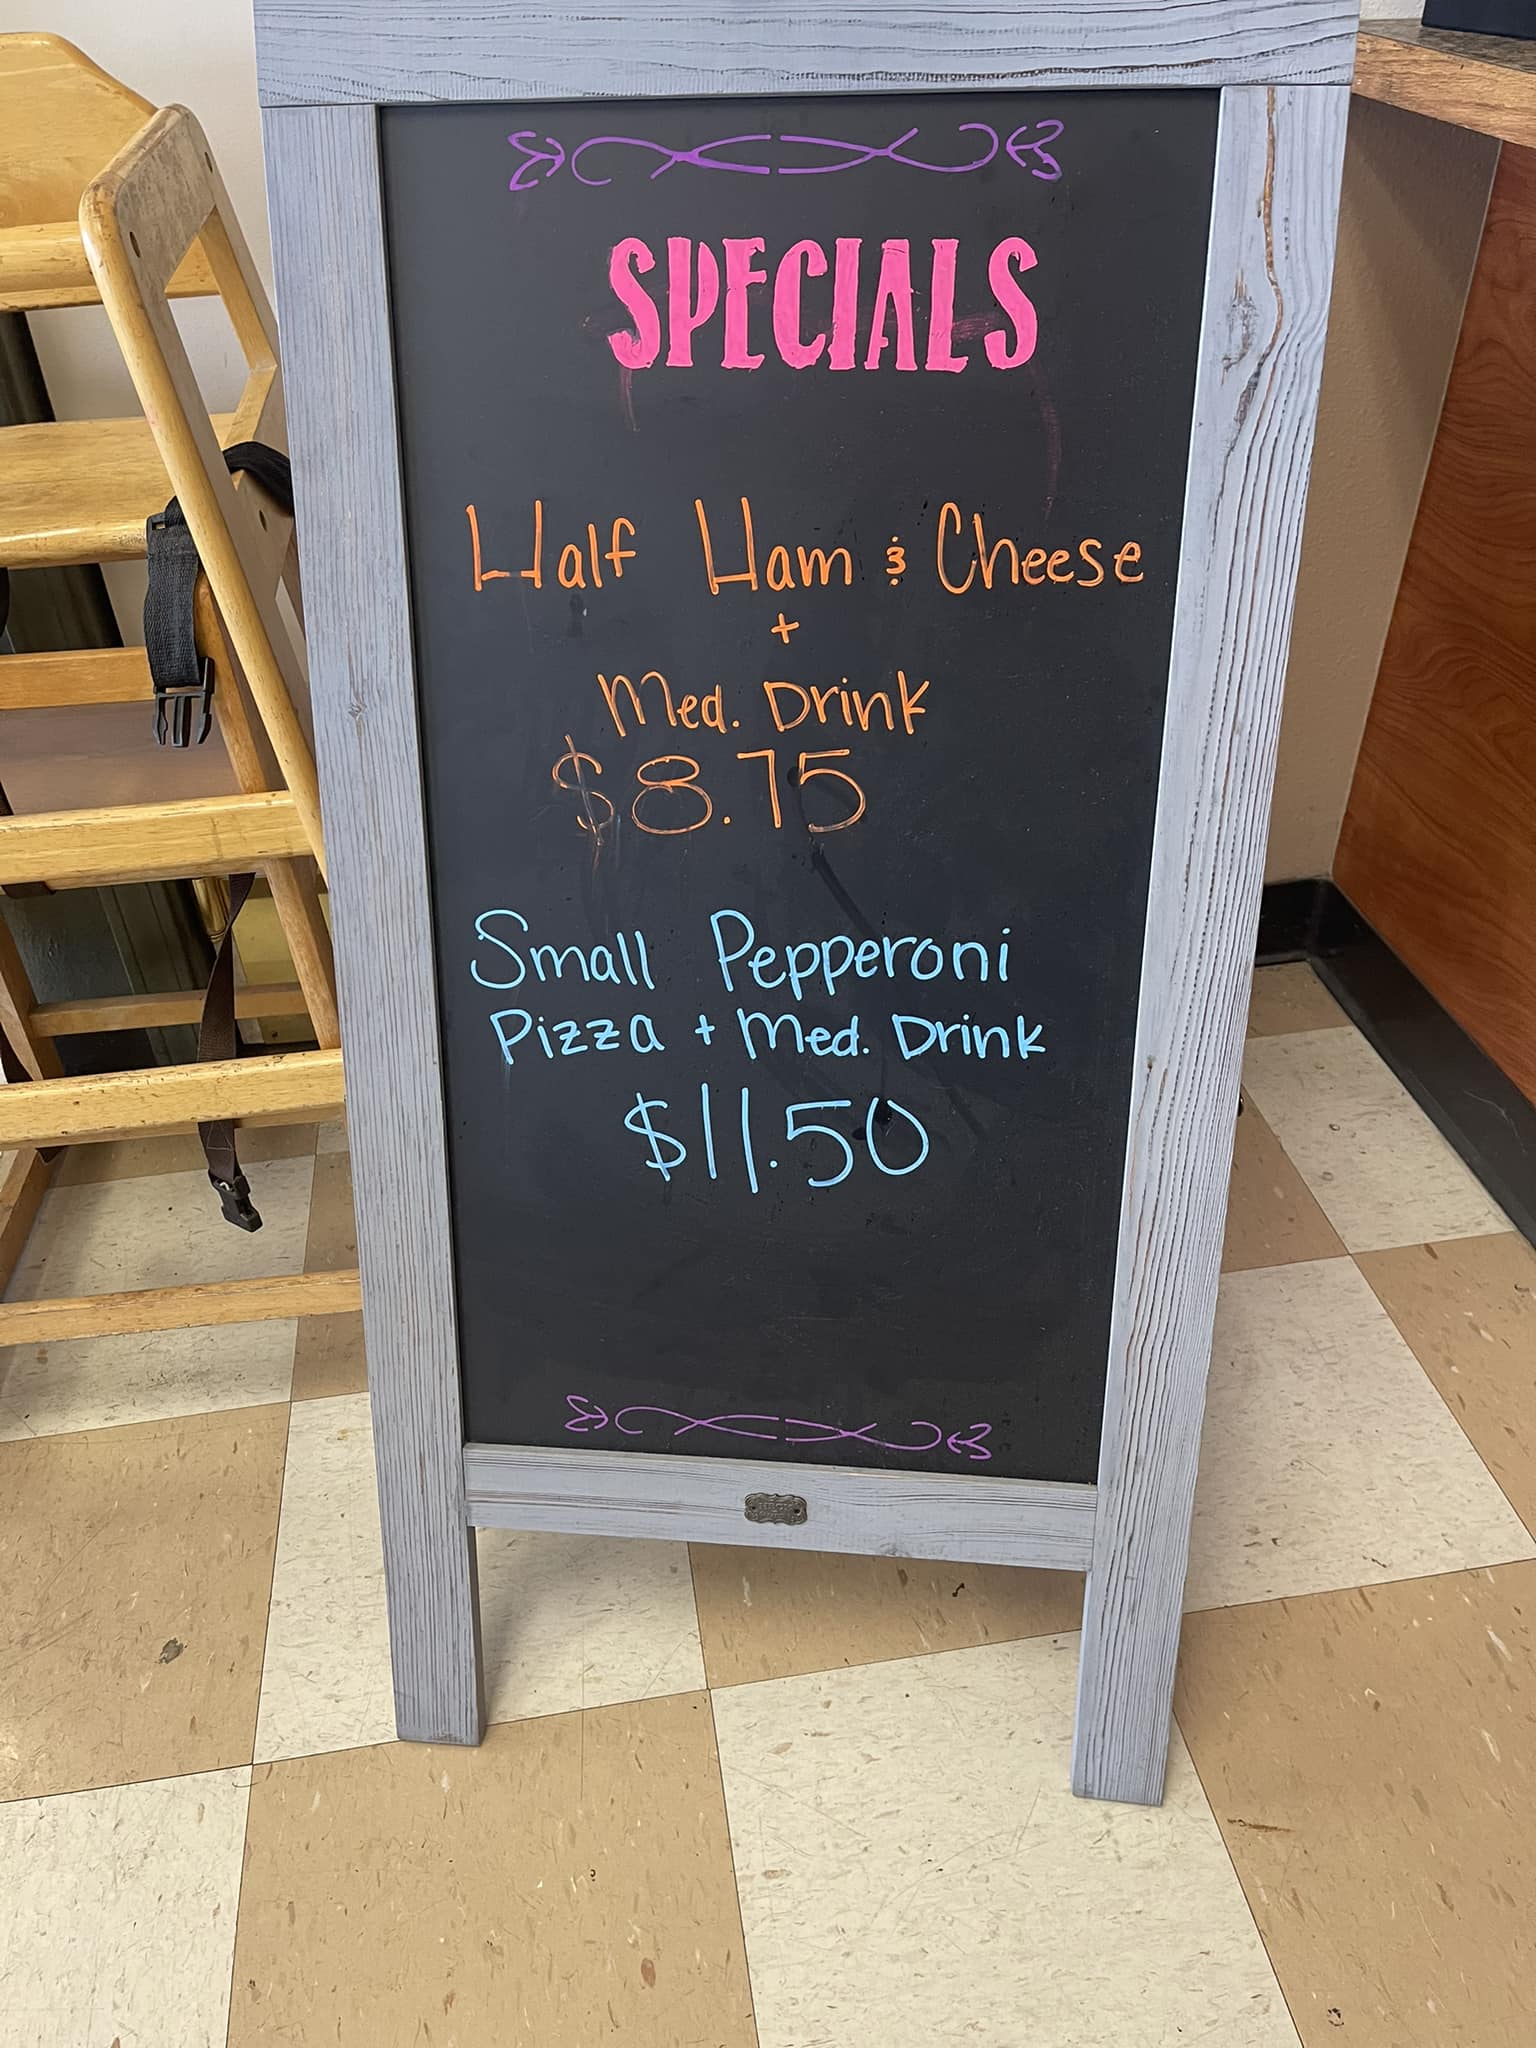 SPECIALS
Half Ham & Cheese
+
Med. Drink
$8.75
Small Pepperoni
Pizza + Med. Drink
$11.50